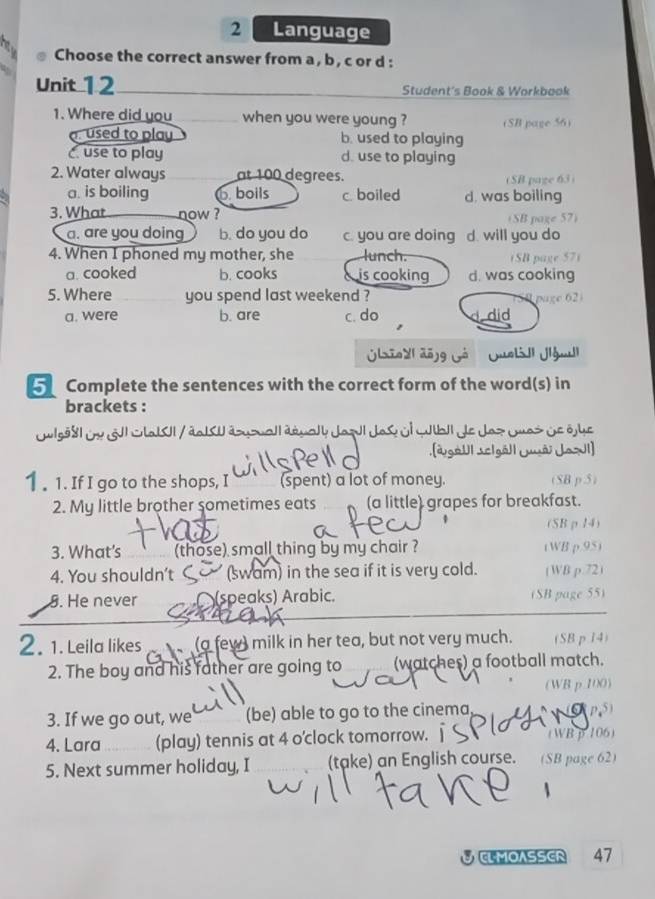 2 Language
Choose the correct answer from a, b, c or d :
Unit 12 Student's Book & Workbook
1. Where did you ______ when you were young ? (SB page 56)
a. used to play b. used to playing
c. use to play d. use to playing
2. Water always ______ at 100 degrees. (SB page 63)
a. is boiling b. boils c. boiled d. was boiling
3. What ______ now ? (SB page 57)
a. are you doing b. do you do c. you are doing d. will you do
4. When I phoned my mother, she ______ lunch. (SB page 57)
a. cooked b. cooks c. is cooking d. was cooking
5. Where ______ you spend last weekend ? (SB page 62)
a. were b. are c. do d. did
السؤال الخامس في ورقة الامتحان
5 Complete the sentences with the correct form of the word(s) in
brackets :
will spell
1. 1. If I go to the shops, I ______ (spent) a lot of money. (SB p.5)
2. My little brother sometimes eats ______ (a little) grapes for breakfast.
a few (SB p 14)
that
3. What's ______ (those) small thing by my chair ? (WB p.95)
4. You shouldn't ______ (swam) in the sea if it is very cold. (WB p.72)
5. He never ______ (speaks) Arabic. (SB page 55)
2. 1. Leila likes ______ (a few) milk in her tea, but not very much. (SB p 14)
2. The boy and his father are going to ______ (watches) a football match.
watch (WB p.100)
will
3. If we go out, we ______ (be) able to go to the cinema. p.5)
4. Lara ______ (play) tennis at 4 o'clock tomorrow. is playing (WB p.106)
5. Next summer holiday, I ______ (take) an English course. (SB page 62)
will take
EL-MOASSER 47